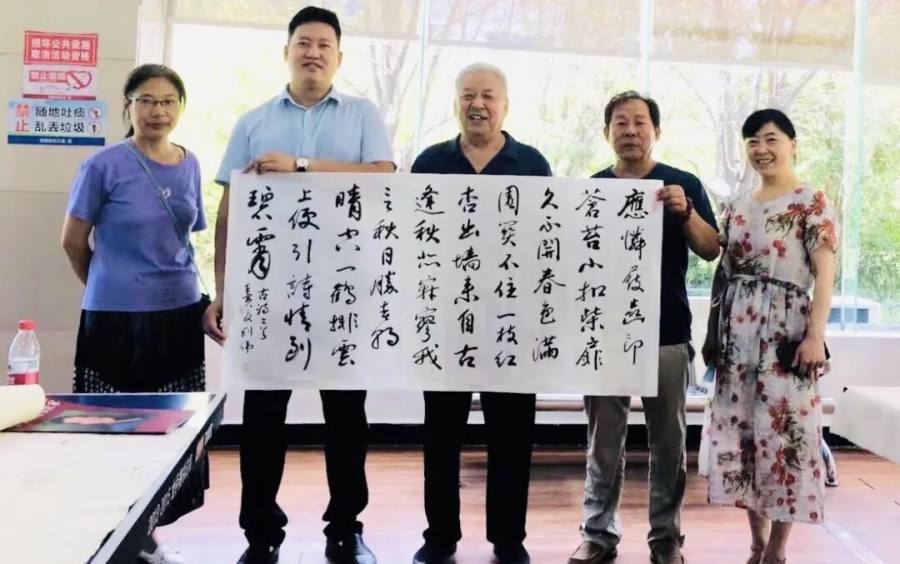 损坏公共设施
取消活动资格
禁止吸烟
禁止
随地吐痰
乱丢垃圾
應憐屐齒印
蒼苔小扣柴扉
久不開春色滿
園關不住一枝紅
杏出墙来自古
逢秋悲寂寥我
言秋日勝春朝
晴空一鶴排雲
上便引詩情到
碧霄
古詩二首